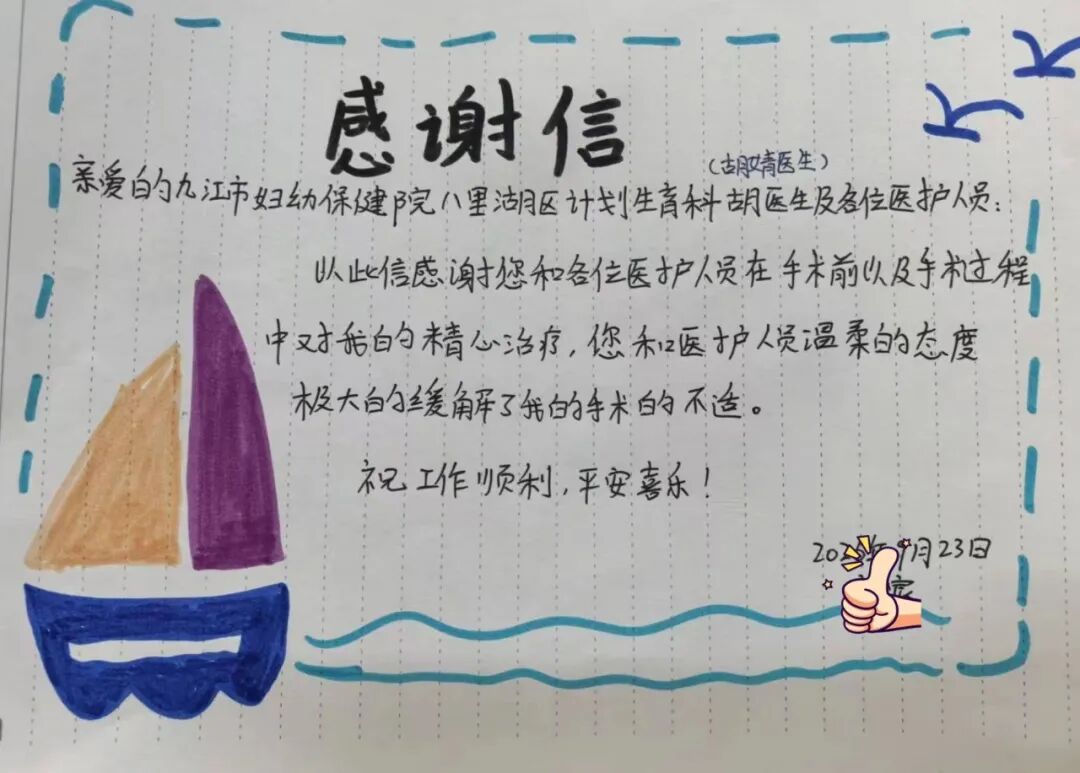 感谢信
(胡婧医生)
亲爱的九江市妇幼保健院八里湖区计划生育科胡医生及各位医护人员:
以此信感谢您和各位医护人员在手术前以及手术过程
中对我的精心治疗,您和医护人员温柔的态度
极大的缓解了我的手术的不适。
祝工作顺利,平安喜乐!
20 月23日